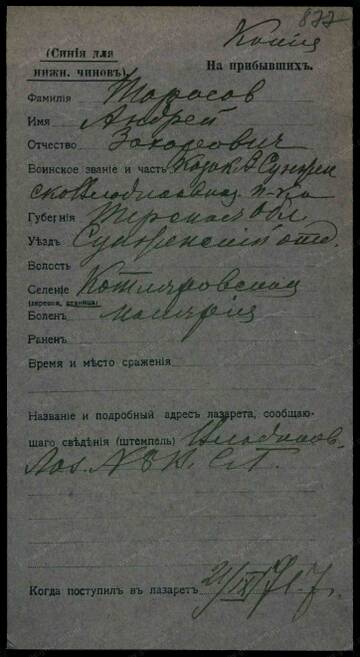 877
Копія
(Синія для
нижн. чиновъ)
На прибывшихъ.
Фамилія Тарасов
Имя Андрей
Отчество Захарович
Воинское званіе и часть Казак 2 Сунжен
ско Владикавказ. п-ка
Губернія Терская обл
Уѣздъ Сунженский отд.
Волость
Селеніе Котляровская
(деревня, станица)
Боленъ малярия
Раненъ
Время и мѣсто сраженія
Названіе и подробный адресъ лазарета, сообщаю-
щаго свѣдѣнія (штемпель) Владикав.
Лаз. №
Когда поступилъ въ лазаретъ 21/IX 1917.